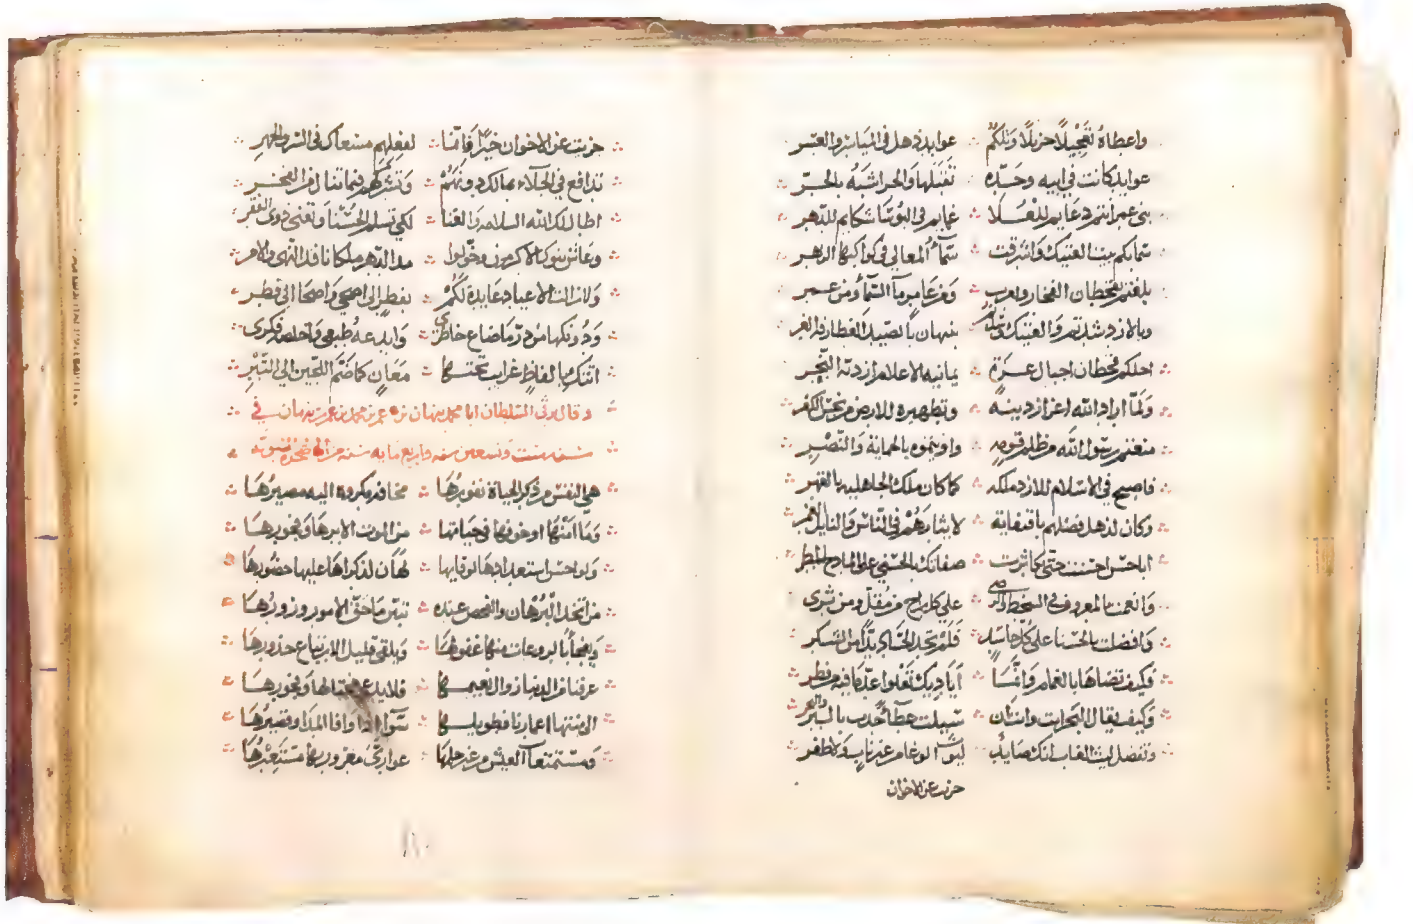 واعطاهُ تَبْجِيلًا جزيلًا وتلكمُ ∴ عوايد ذهل في المياسر والعسر
عوايد كانت في ابيه وجَدّه ∴ تقبّلها والحر اشبَهُ بالحُرّ
بني عمر انتم دعايم للعُلا ∴ غمايم في البوسا شكايم للدهر
سما بكم بيت العتيك واشرقت ∴ سَمآءُ المعالي في كواكبها الزهر
بلغتم بقحطان الفخار ويعرب ∴ ومن عامر مآء السمآء ومن عمر
وبالازد شدتم والعتيك بنبهان بالصيد الغطارفه الغر
احلكم قحطان اجبال عزة ∴ يمانيه الاعلام ازديّة النجر
ولمّا اراد الله اعزاز دينه ∴ وتطهيره للارض من نجس الكفر
منعتم رسول الله من ظلم قومه ∴ واويتموه بالحماية والنصر
فاصبح في الاسلام للازد ملكه ∴ كما كان ملك الجاهلية بالقهر
وكان لذهل فضلهم باقتفائه ∴ لاثارهم في الناس والنايل الغمر
ابا حسن احسنت حتى تكاثرت ∴ صفاتك بالحسنى على المادح المطر
وانعمت بالمعروف في السخط والرضى على كل راج من مقل ومن مثرى
وافضلت بالحسنا على كل حاسد ∴ فلم يجد الحساد بدّا من الشكر
وكيف تضاهَا بالغمام وانّما ∴ اياديك تعلوا عدّ ما فيه من قطر
وكيف يقال البحر انت وانتان ∴ سبيلت عطآء جدت بالبر والبحر
وتفضل ليث الغاب انك صايد ∴ ليوث الوغا من غير ناب ولا ظفر
جزيت عن الاخوان
∴ جزيت عن الاخوان خيرًا فانّما ∴ لفعلهم مسعاك في السر والجهر
∴ تدافع في الجلاء بمالك دونهم ∴ وتشركهم فيما تنال من الفخر
∴ اطال لك الله السلامه والغنا ∴ لكي تسلم الحسنا وتغنى ذوى الفقر
∴ وعاش بنوك الاكرمون وخولوا ∴ مدا الدهر ملكا نافذ النهى والامر
∴ ولا زالت الاعياد عايدة لكم ∴ بفطر الى اضحى واضحا الى فطر
∴ ودونكها من درّ ما صاغ خاطرى ∴ وابدعه طبعى واخلصه فكرى
∴ اتتك بالفاظ غراب تحتها ∴ معان كما ضم اللجين الى التبر
∴ وقال يرثي السلطان ابا محمد نبهان بن عمر بن محمد بن عمر بن نبهان في ∴
سنه ست وتسعين سنه واربع مايه سنه
∴ هي النفس من ذكر الحياة نفورها ∴ مخافه مكروه اليه مصيرها
∴ وما امنها او خوفها في حياتها ∴ من الموت الا برها وفجورها
∴ ولو احسن استعدادها لوفاتها ∴ لهان لذكراها عليها حضورها
∴ من اتخذ البرهان والفحص عنده ∴ تبيّن ما حقّ الامور وزورها
∴ ويفجأ بالروعات منها غفولها ∴ ويلقى قليل الارتياع حذورها
∴ عرفنا من الدنيا زوال نعيمها ∴ فلا يدعنا وغرورها
∴ الى منتها اعمارنا فطويلها ∴ سوآء اذا وافا المدا وقصيرها
∴ ومستمتعات العيش من غير حلها ∴ عوارىّ مغرور بها مستعيرها